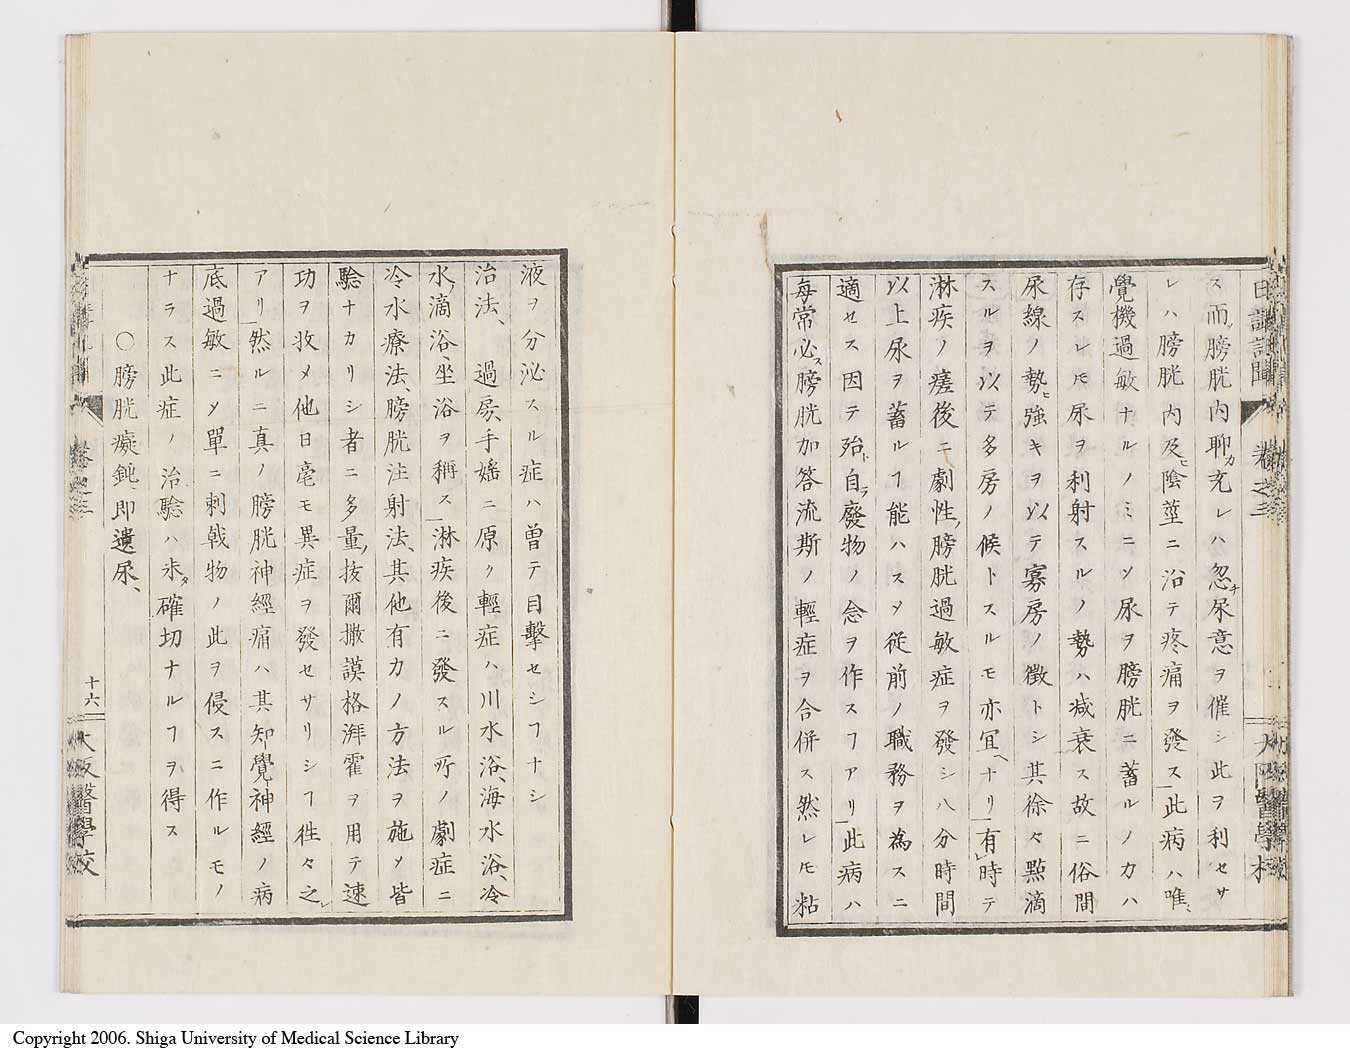 日講記聞 卷之三
ス而膀胱内聊カ充レハ忽チ尿意ヲ催シ此ヲ利セサ
レハ膀胱内及ヒ陰莖ニ沿テ疼痛ヲ發ス此病ハ唯ミ
覺機過敏ナルノミニソ尿ヲ膀胱ニ蓄ルノカハ
存スレモ尿ヲ利射スルノ勢ハ減衰ス故ニ俗間
尿線ノ勢ヒ強キヲ以テ寡房ノ徴トシ其徐々點滴
スルヲ以テ多房ノ候トスルモ亦冝ヘナリ有レ時テ
淋疾ノ瘥後ニモ劇性ノ膀胱過敏症ヲ發シ八分時間
以上尿ヲ蓄ルヿ能ハスメ従前ノ職務ヲ為スニ
適セス因テ殆ト自ラ廢物ノ念ヲ作スヿアリ此病ハ
每常必ス膀胱加答流斯ノ輕症ヲ合併ス然レモ粘
液ヲ分泌スル症ハ曽テ目擊セシヿナシ
治法、過房、手婬ニ原ク輕症ハ川水浴、海水浴、冷
水ノ滴浴、坐浴ヲ稱ス淋疾後ニ發スル所ノ劇症ニ
冷水療法、膀胱注射法、其他有力ノ方法ヲ施メ皆
驗ナカリシ者ニ多量ノ抜爾撒謨格湃霍ヲ用テ速
功ヲ收メ他日毫モ異症ヲ發セサリシヿ徃々之レ
アリ然ルニ真ノ膀胱神經痛ハ其知覺神經ノ病
底過敏ニメ單ニ刺戟物ノ此ヲ侵スニ作ルモノ
ナラス此症ノ治驗ハ未タ確切ナルヿヲ得ス
〇膀胱癡鈍、即遺尿、
十六
大阪醫學校